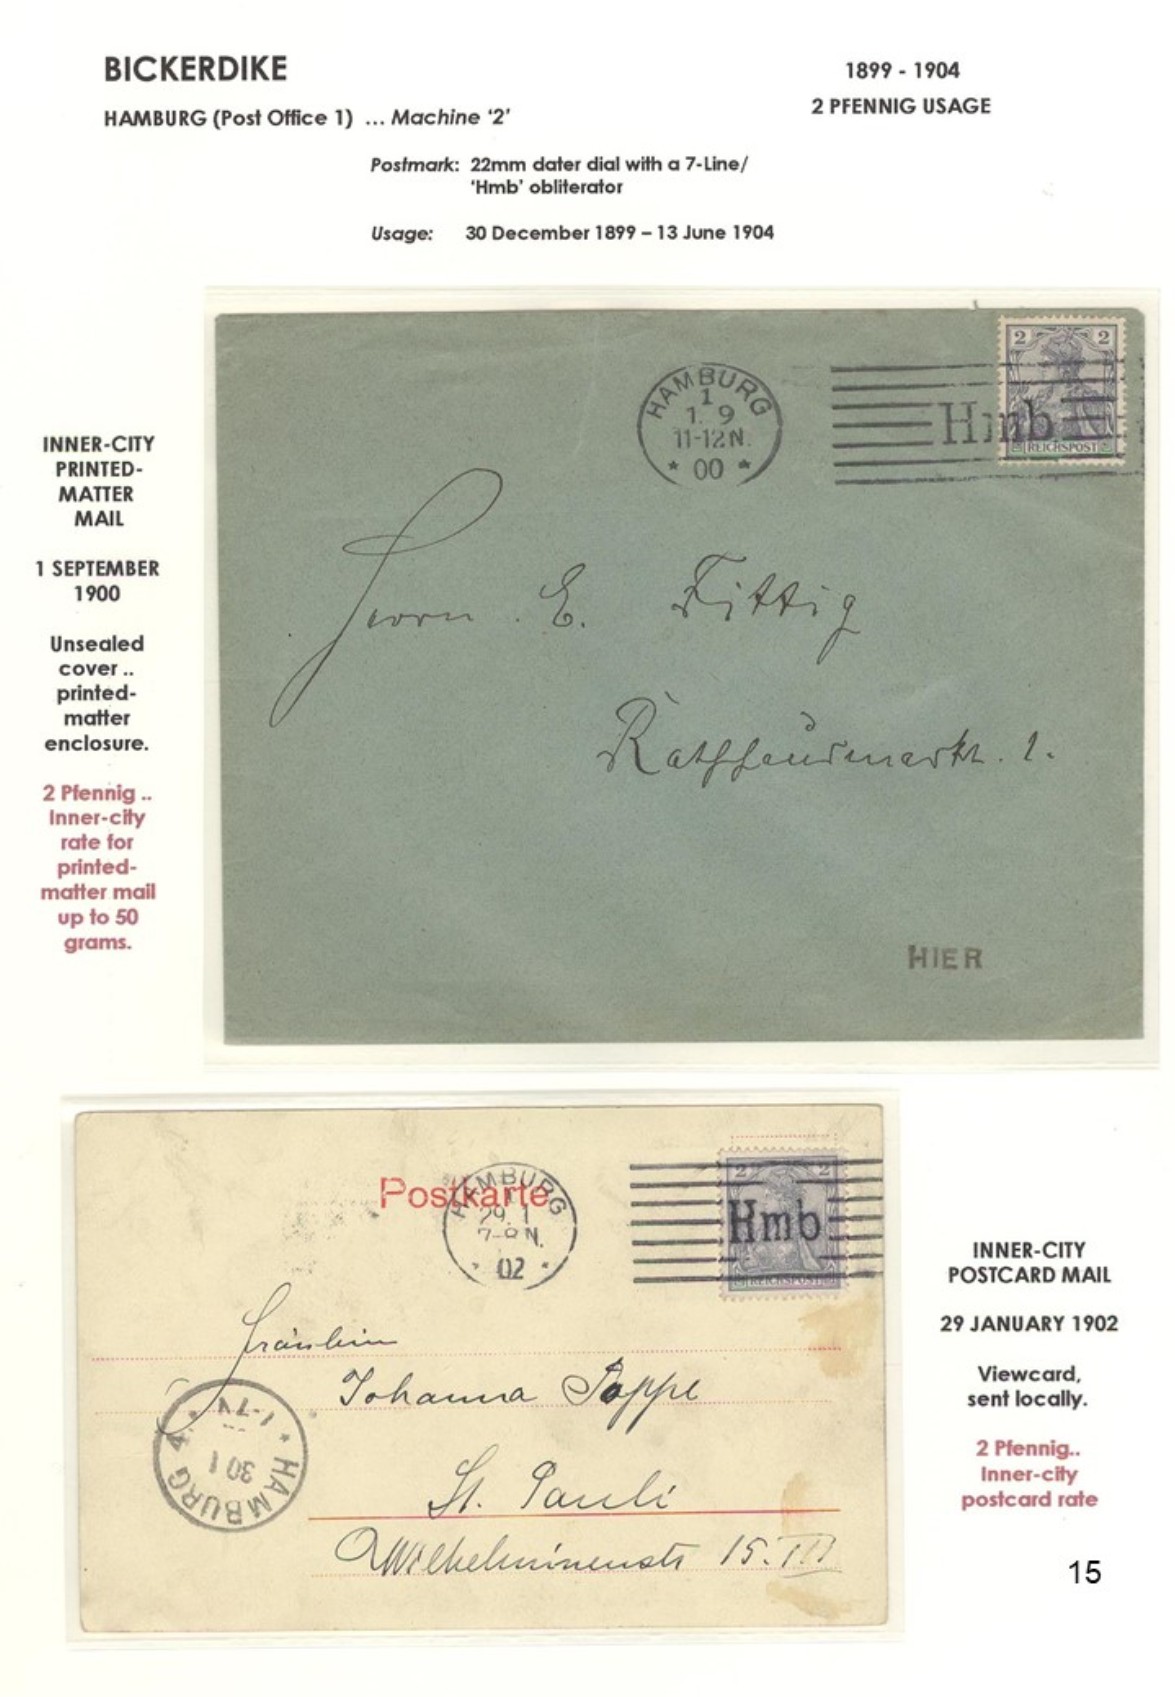 BICKERDIKE
1899 - 1904
HAMBURG (Post Office 1) ... Machine '2'
2 PFENNIG USAGE
Postmark: 22mm dater dial with a 7-Line/
'Hmb' obliterator
Usage: 30 December 1899 – 13 June 1904
INNER-CITY
PRINTED-
MATTER
MAIL
1 SEPTEMBER
1900
Unsealed
cover ..
printed-
matter
enclosure.
2 Pfennig ..
Inner-city
rate for
printed-
matter mail
up to 50
grams.
HAMBURG
1
1. 9
11-12 N.
* 00 *
2 2
Hmb
REICHSPOST
Herrn E. Fittig
Rathhausmarkt. 1.
HIER
Postkarte
HAMBURG
1
29. 1
7-8 N.
* 02 *
2 2
Hmb
REICHSPOST
Fräulein
Johanna Poppe
St. Pauli
Wilhelminenstr 15. III
* HAMBURG 4. *
30 1
1-7 V
INNER-CITY
POSTCARD MAIL
29 JANUARY 1902
Viewcard,
sent locally.
2 Pfennig..
Inner-city
postcard rate
15